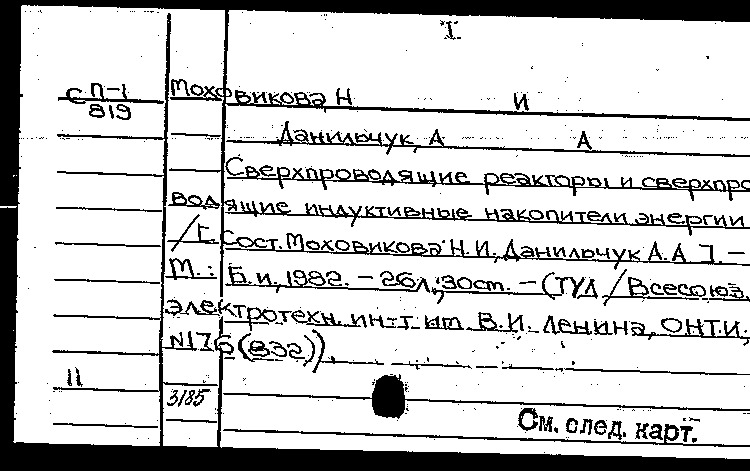 I
С П-1
819
Моховикова, Н И
Данильчук, А А
Сверхпроводящие реакторы и сверхпро-
водящие индуктивные накопители энергии
/[Сост. Моховикова Н.И, Данильчук А.А]. –
М.: Б.и, 1982. – 26л, 30ст. – (ТУЛ / Всесоюз.
электротехн. ин-т им В.И. Ленина, ОНТИ,
N176(832)).
11
3185
См. след. карт.